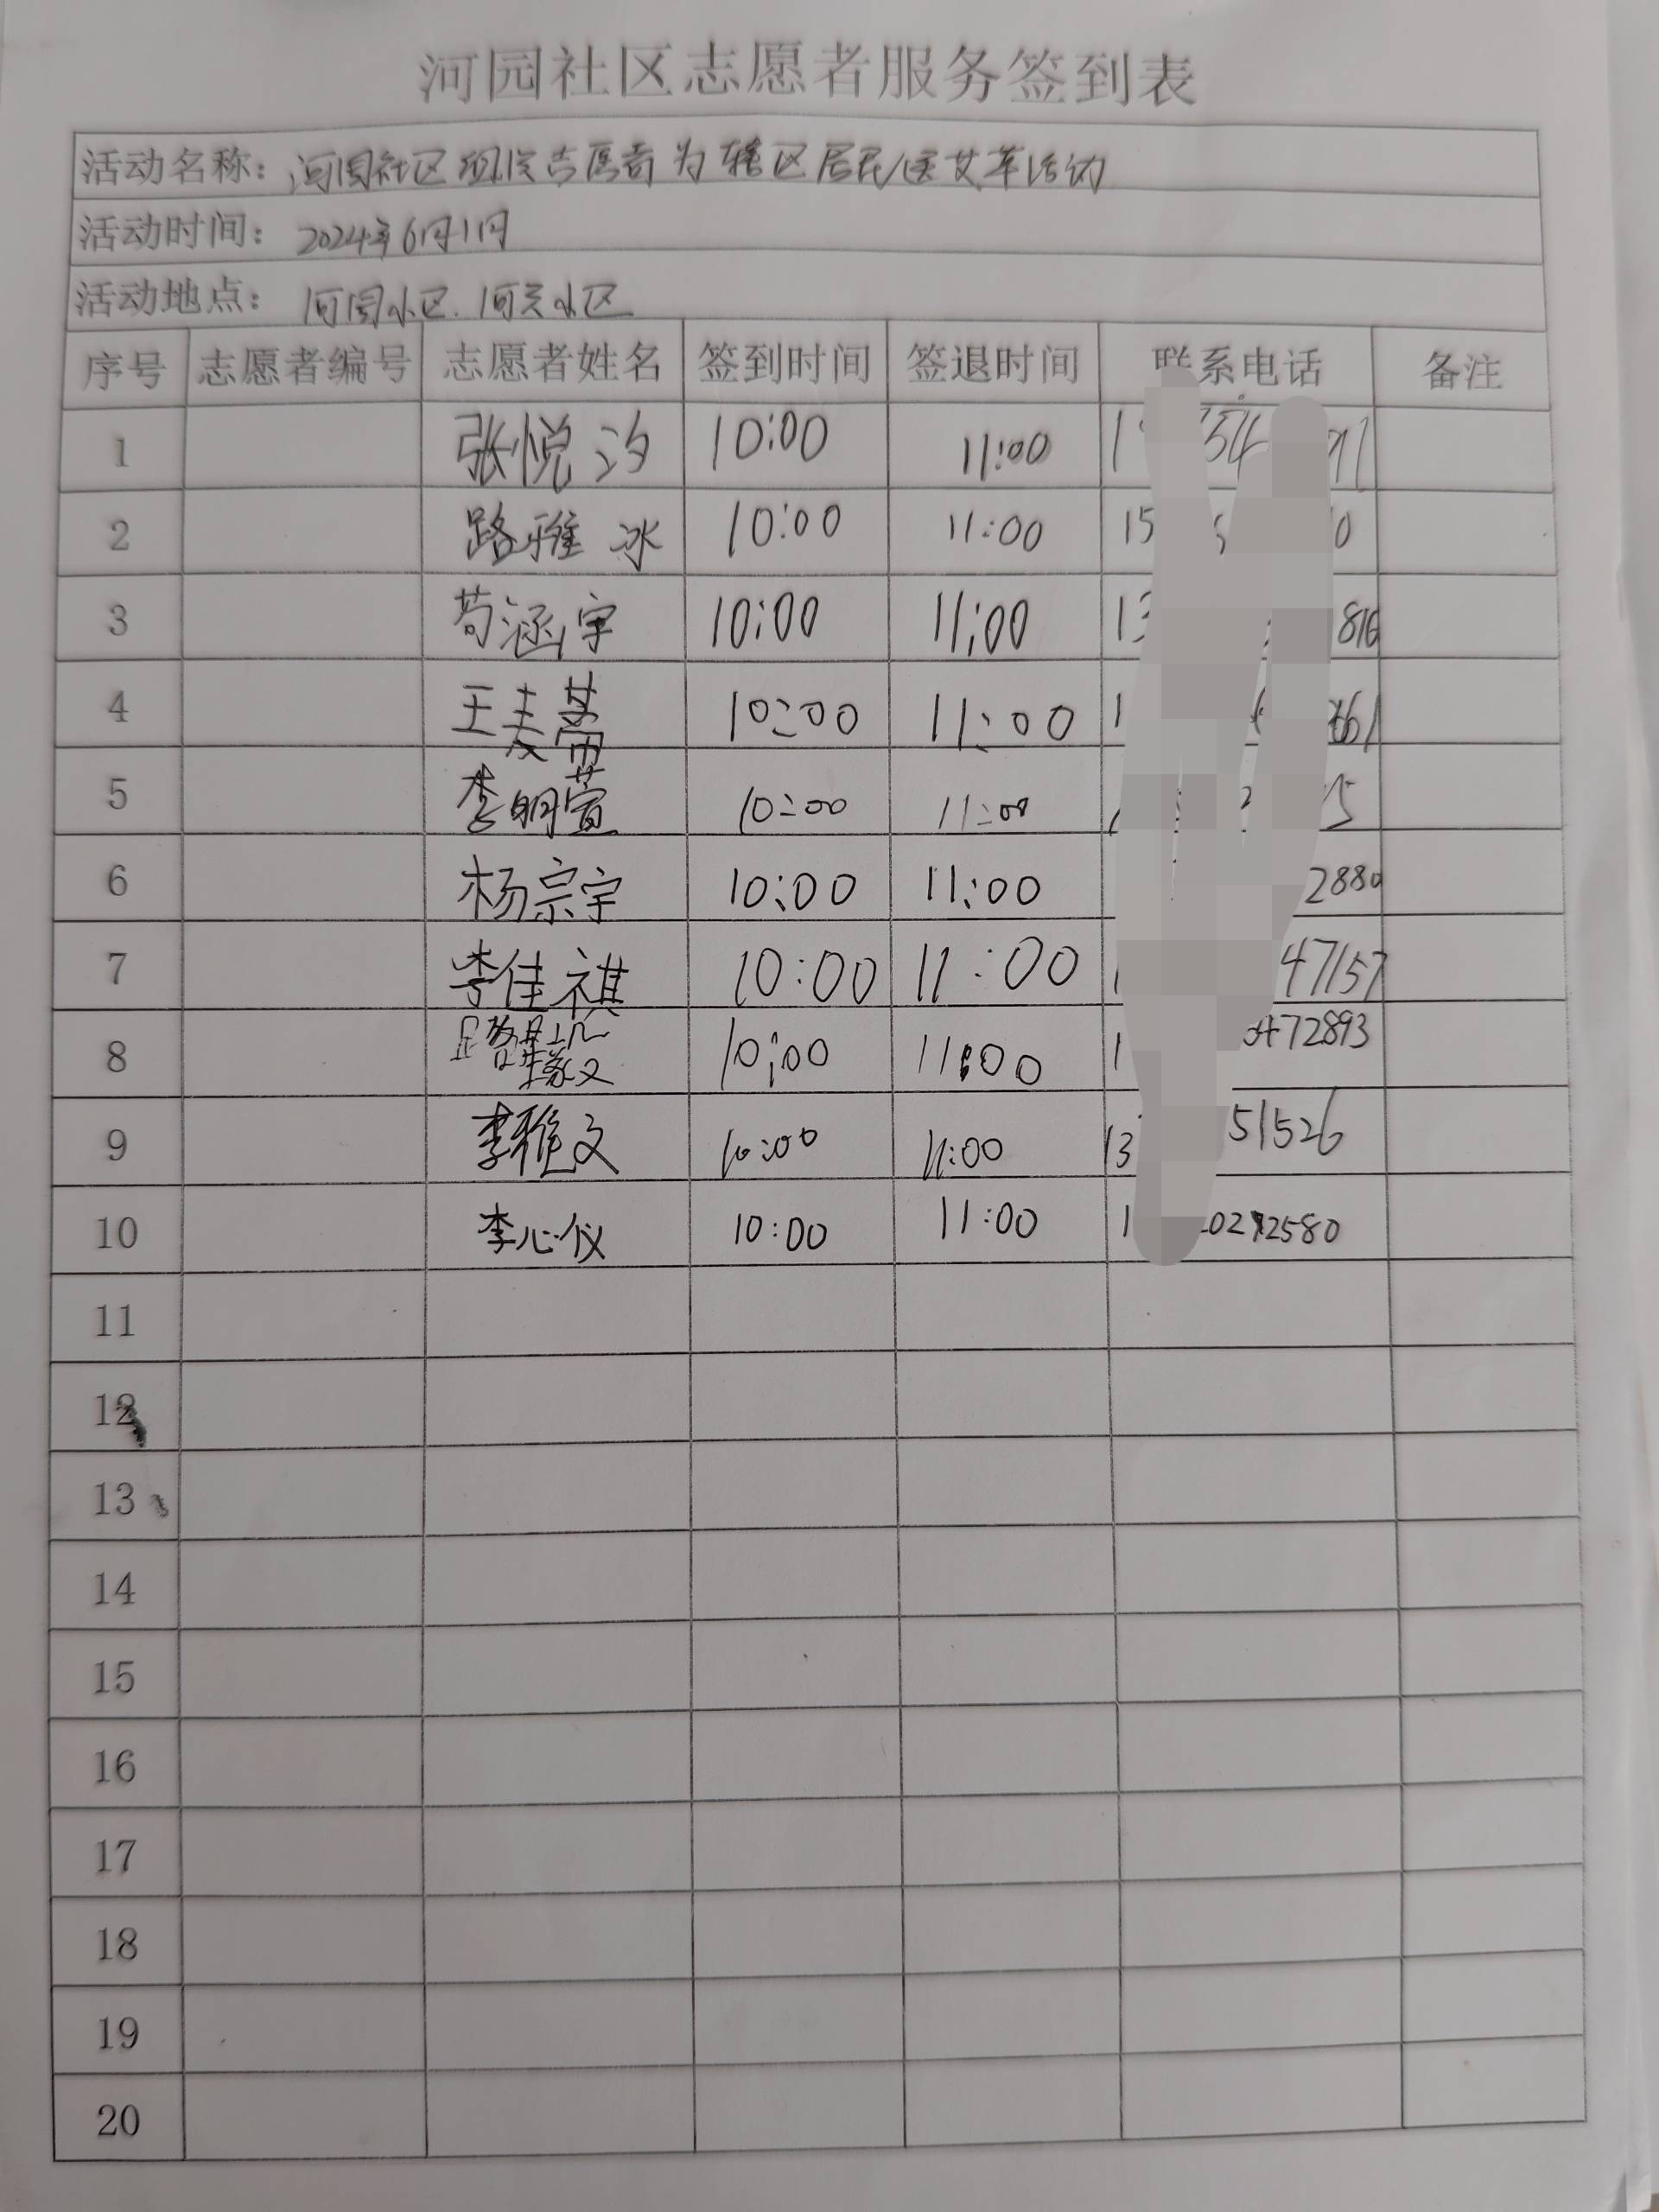 河园社区志愿者服务签到表
活动名称：河园社区组织志愿者为辖区居民送艾草活动
活动时间：2024年6月1日
活动地点：河园小区.河 小区
序号 志愿者编号 志愿者姓名 签到时间 签退时间 联系电话 备注
1 张悦汐 10:00 11:00
2 路雅冰 10:00 11:00 15 0
3 苟涵宇 10:00 11:00 13 816
4 王 10:00 11:00 1 61
5 李明萱 10:00 11:00 5
6 杨宗宇 10:00 11:00 2880
7 李佳祺 10:00 11:00 1 47157
8 路 10:00 11:00 1 72893
9 李雅文 10:00 11:00 13 51526
10 李心仪 10:00 11:00 1 2580
11
12
13
14
15
16
17
18
19
20